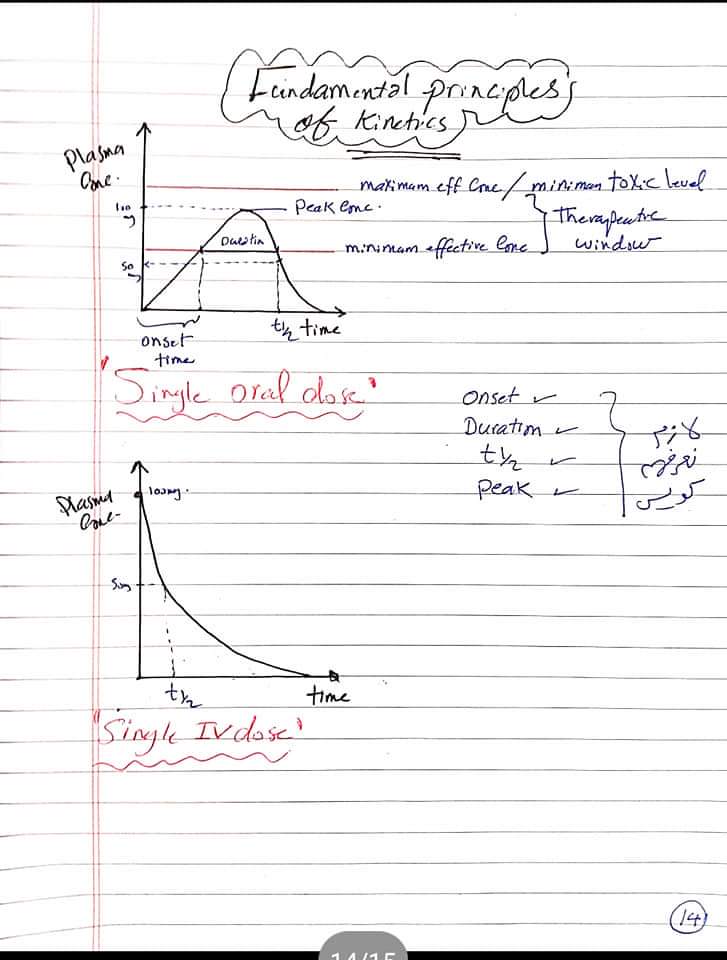 Fundamental principles
of Kinetics
Plasma
Conc.
maximum eff Conc / miniman toxic level
100
mg
Peak Conc.
Therapeutic
window
Duration
minimum effective Conc
50
mg
t1/2 time
onset
time
"Single oral dose"
Onset ✓
Duration ✓
t1/2 ✓
Peak ✓
لازم
نعرفهم
كويس
Plasma
Conc-
100mg.
50mg
t1/2
time
"Single IV dose"
14
14/15